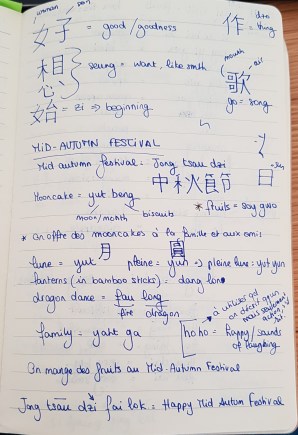 woman
女子 = good / goodness
作 = do thing
相心 } seung = want, like smth
mouth
air
歌
go = song
始 = zi => beginning
MID-AUTUMN FESTIVAL
Mid autumn festival = Jong tsau dzi
中秋節
日 = sun
Mooncake = yut beng
moon/month biscuits
* fruits = soy gwo
* On offre des mooncakes à la famille et aux amis
lune = yut 月 pleine = yun => pleine lune: yut yun
lanterns (in bamboo sticks) = dang long
dragon dance = fau long
fire dragon
family = yaht ga
hoho = happy / sounds of laughing
On mange des fruits au Mid-Autumn Festival
Jong tsau dzi fai lok = Happy Mid Autumn Festival